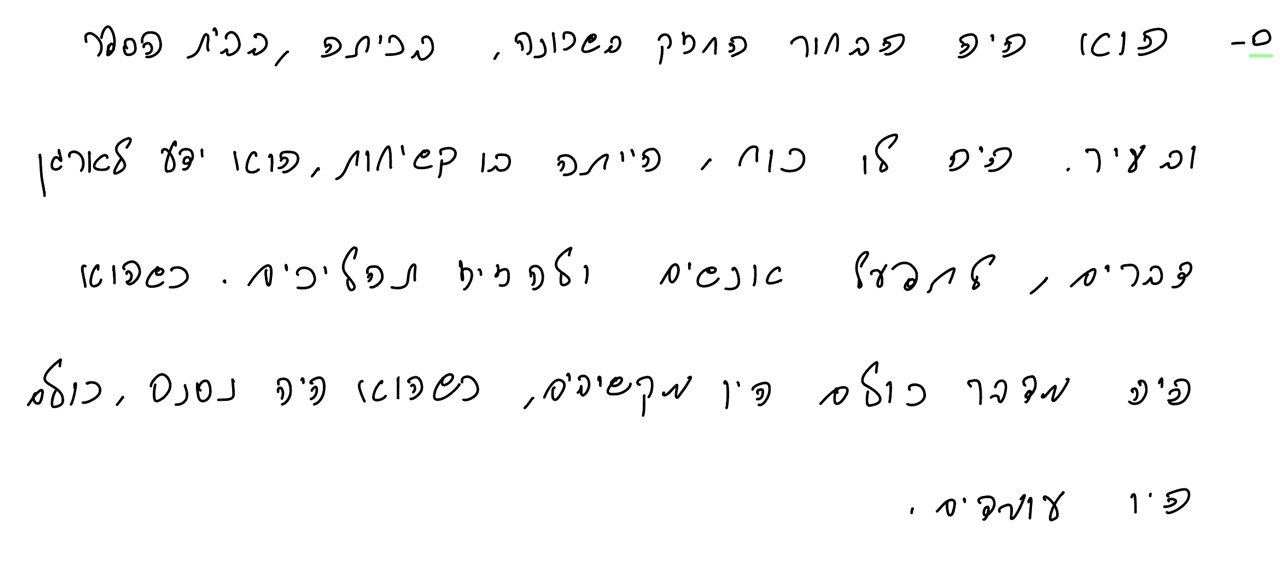 ס- הוא היה הבחור החזק בשכונה, בכיתה, בבית הספר
ובעיר. היה לו כוח, הייתה בו קשיחות, הוא ידע לארגן
דברים, לתפעל אנשים ולהזיז תהליכים. כשהוא
היה מדבר כולם היו מקשיבים, כשהוא היה נסנס, כולם
היו עומדים.